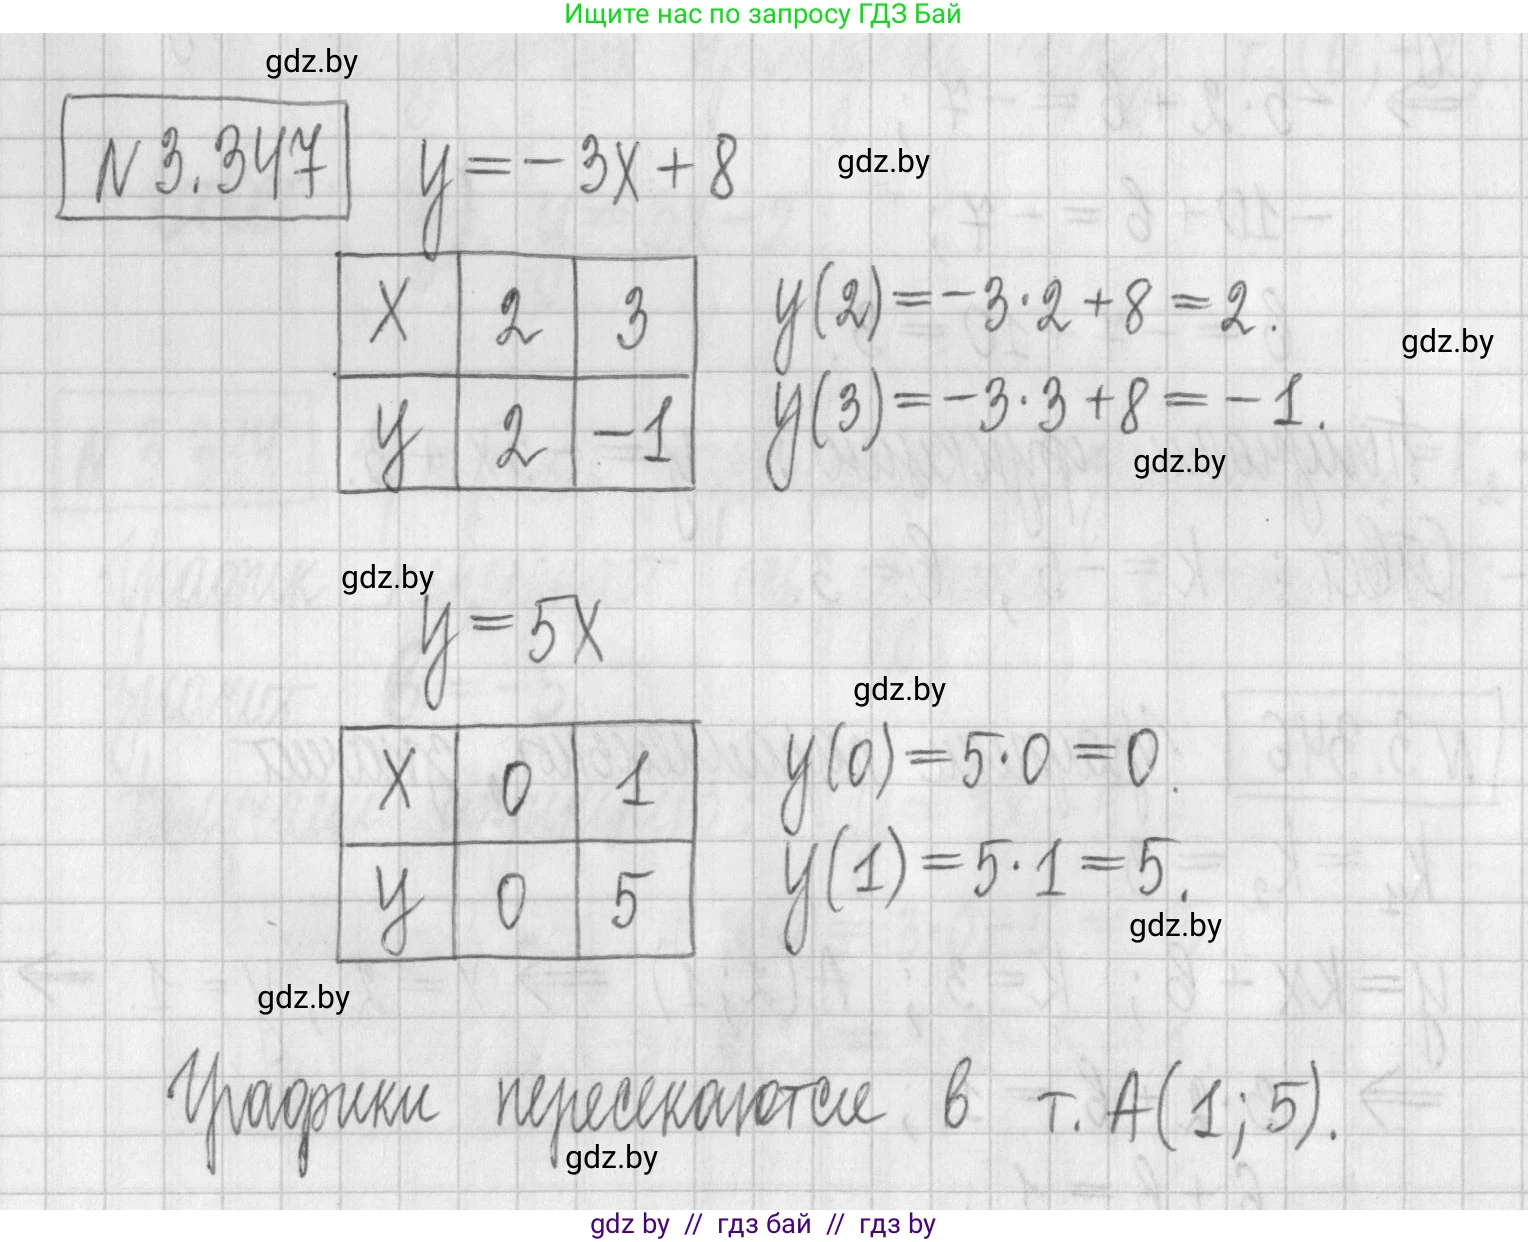 Ищите нас по запросу ГДЗ Бай
gdz.by
N 3.347 y = -3x + 8 gdz.by
x 2 3 y(2) = -3·2 + 8 = 2.
gdz.by
y 2 -1 y(3) = -3·3 + 8 = -1.
gdz.by
gdz.by
y = 5x
gdz.by
x 0 1 y(0) = 5·0 = 0.
y 0 5 y(1) = 5·1 = 5.
gdz.by
gdz.by
Графики пересекаются в т. A(1; 5).
gdz.by
gdz by // гдз бай // гдз by